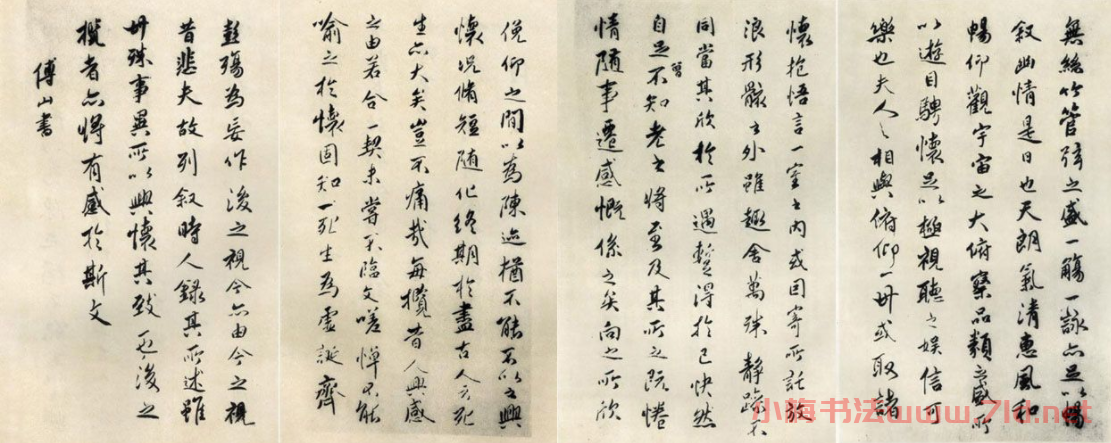 無絲竹管弦之盛一觴一詠亦足以暢
叙幽情是日也天朗氣清惠風和
暢仰觀宇宙之大俯察品類之盛所
以遊目騁懷足以極視聽之娛信可
樂也夫人之相與俯仰一世或取諸
懷抱悟言一室之内或因寄所託放
浪形骸之外雖趣舍萬殊静躁不
同當其欣於所遇暫得於己快然
自足不知老之將至及其所之既惓
曾
情随事遷感慨係之矣向之所欣
俛仰之間以為陳迹猶不能不以之興
懷况脩短随化終期於盡古人云死
生亦大矣豈不痛哉每攬昔人興感
之由若合一契未嘗不臨文嗟悼不能
喻之於懷固知一死生為虚誕齊
彭殤為妄作後之視今亦由今之視
昔悲夫故列叙時人錄其所述雖
世殊事異所以興懷其致一也後之
攬者亦將有感於斯文
傅山書
小梅书法www.7ld.net